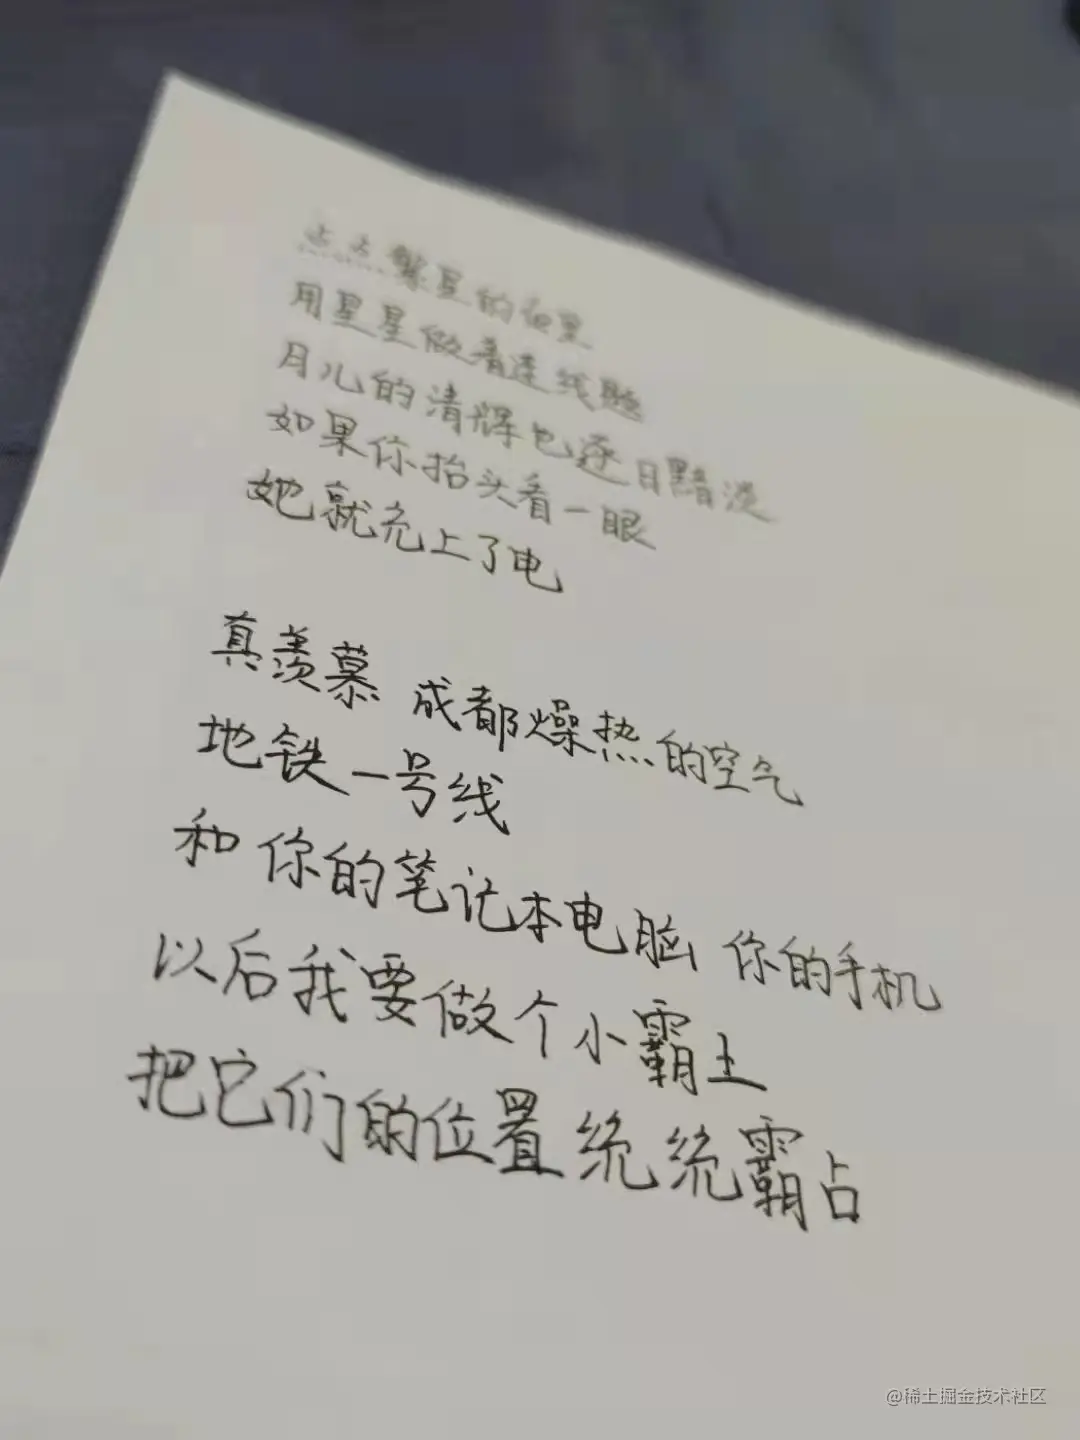 点点繁星的夜里
用星星做着连线题
月儿的清辉也逐日黯淡
如果你抬头看一眼
她就充上了电
真羡慕 成都燥热的空气
地铁一号线
和你的笔记本电脑 你的手机
以后我要做个小霸王
把它们的位置统统霸占
@稀土掘金技术社区